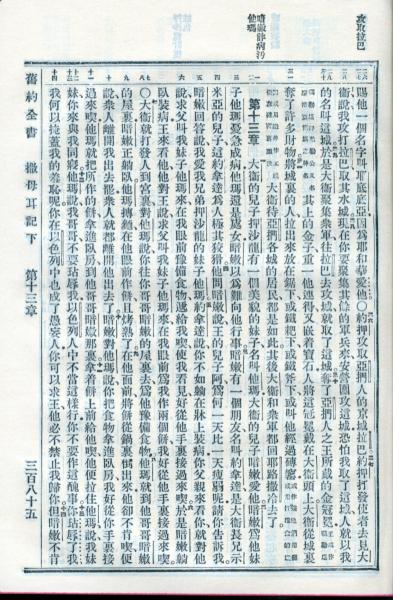 攻取拉巴
暗嫩詐病汚他瑪
賜他一個名字叫耶底底亞因爲耶和華愛他〇約押攻取亞捫人的京城拉巴約押打發使者去見大
衞說我攻打拉巴取其水城現在你要聚集其餘的軍兵來安營圍攻這城恐怕我取了這城人就以我
的名叫這城於是大衞聚集衆軍往拉巴去攻城就取了這城奪了亞捫人之王所戴的金冠冕
其上的金子重一他連得又嵌着寶石人將這冠冕戴在大衞頭上大衞從城裏
奪了許多財物將城裏的人拉出來放在鋸下或鐵耙下或鐵斧下或叫他經過磚窰
大衞待亞捫各城的居民都是如此其後大衞和衆軍都回耶路撒冷去了
第十三章
大衞的兒子押沙龍有一個美貌的妹子名叫他瑪大衞的兒子暗嫩愛他暗嫩爲他妹
子他瑪憂急成病他瑪還是處女暗嫩以爲難向他行事暗嫩有一個朋友名叫約拿達是大衞長兄示
米亞的兒子這約拿達爲人極其狡猾他問暗嫩說王的兒子阿爲何一天比一天瘦弱呢請你告訴我
暗嫩回答說我愛我兄弟押沙龍的妹子他瑪約拿達說你不如躺在牀上裝病你父親來看你就對他
說求父叫我妹子他瑪來在我眼前豫備食物遞給我喫使我看見好從他手裏接過來喫於是暗嫩躺
臥裝病王來看他他對王說求父叫我妹子他瑪來在我眼前爲我作兩個餅我好從他手裏接過來喫
〇大衞就打發人到宮裏對他瑪說你往你哥哥暗嫩的屋裏去爲他豫備食物他瑪就到他哥哥暗嫩
的屋裏暗嫩正躺臥他瑪摶麵在他眼前作餅且烤熟了在他面前將餅從鍋裏倒出來他卻不肯喫便
說衆人離開我出去罷衆人就都離開他出去了暗嫩對他瑪說你把食物拿進臥房我好從你手裏接
過來喫他瑪就把所作的餅拿進臥房到他哥哥暗嫩那裏拿着餅上前給他喫他便拉住他瑪說我妹
妹你來與我同寢他瑪說我哥哥不要玷辱我以色列人中不當這樣行你不要作這醜事你玷辱了我
我何以掩蓋我的羞恥呢你在以色列中也成了愚妄人你可以求王他必不禁止我歸你但暗嫩不肯
舊約全書 撒母耳記下 第十三章
三百八十五